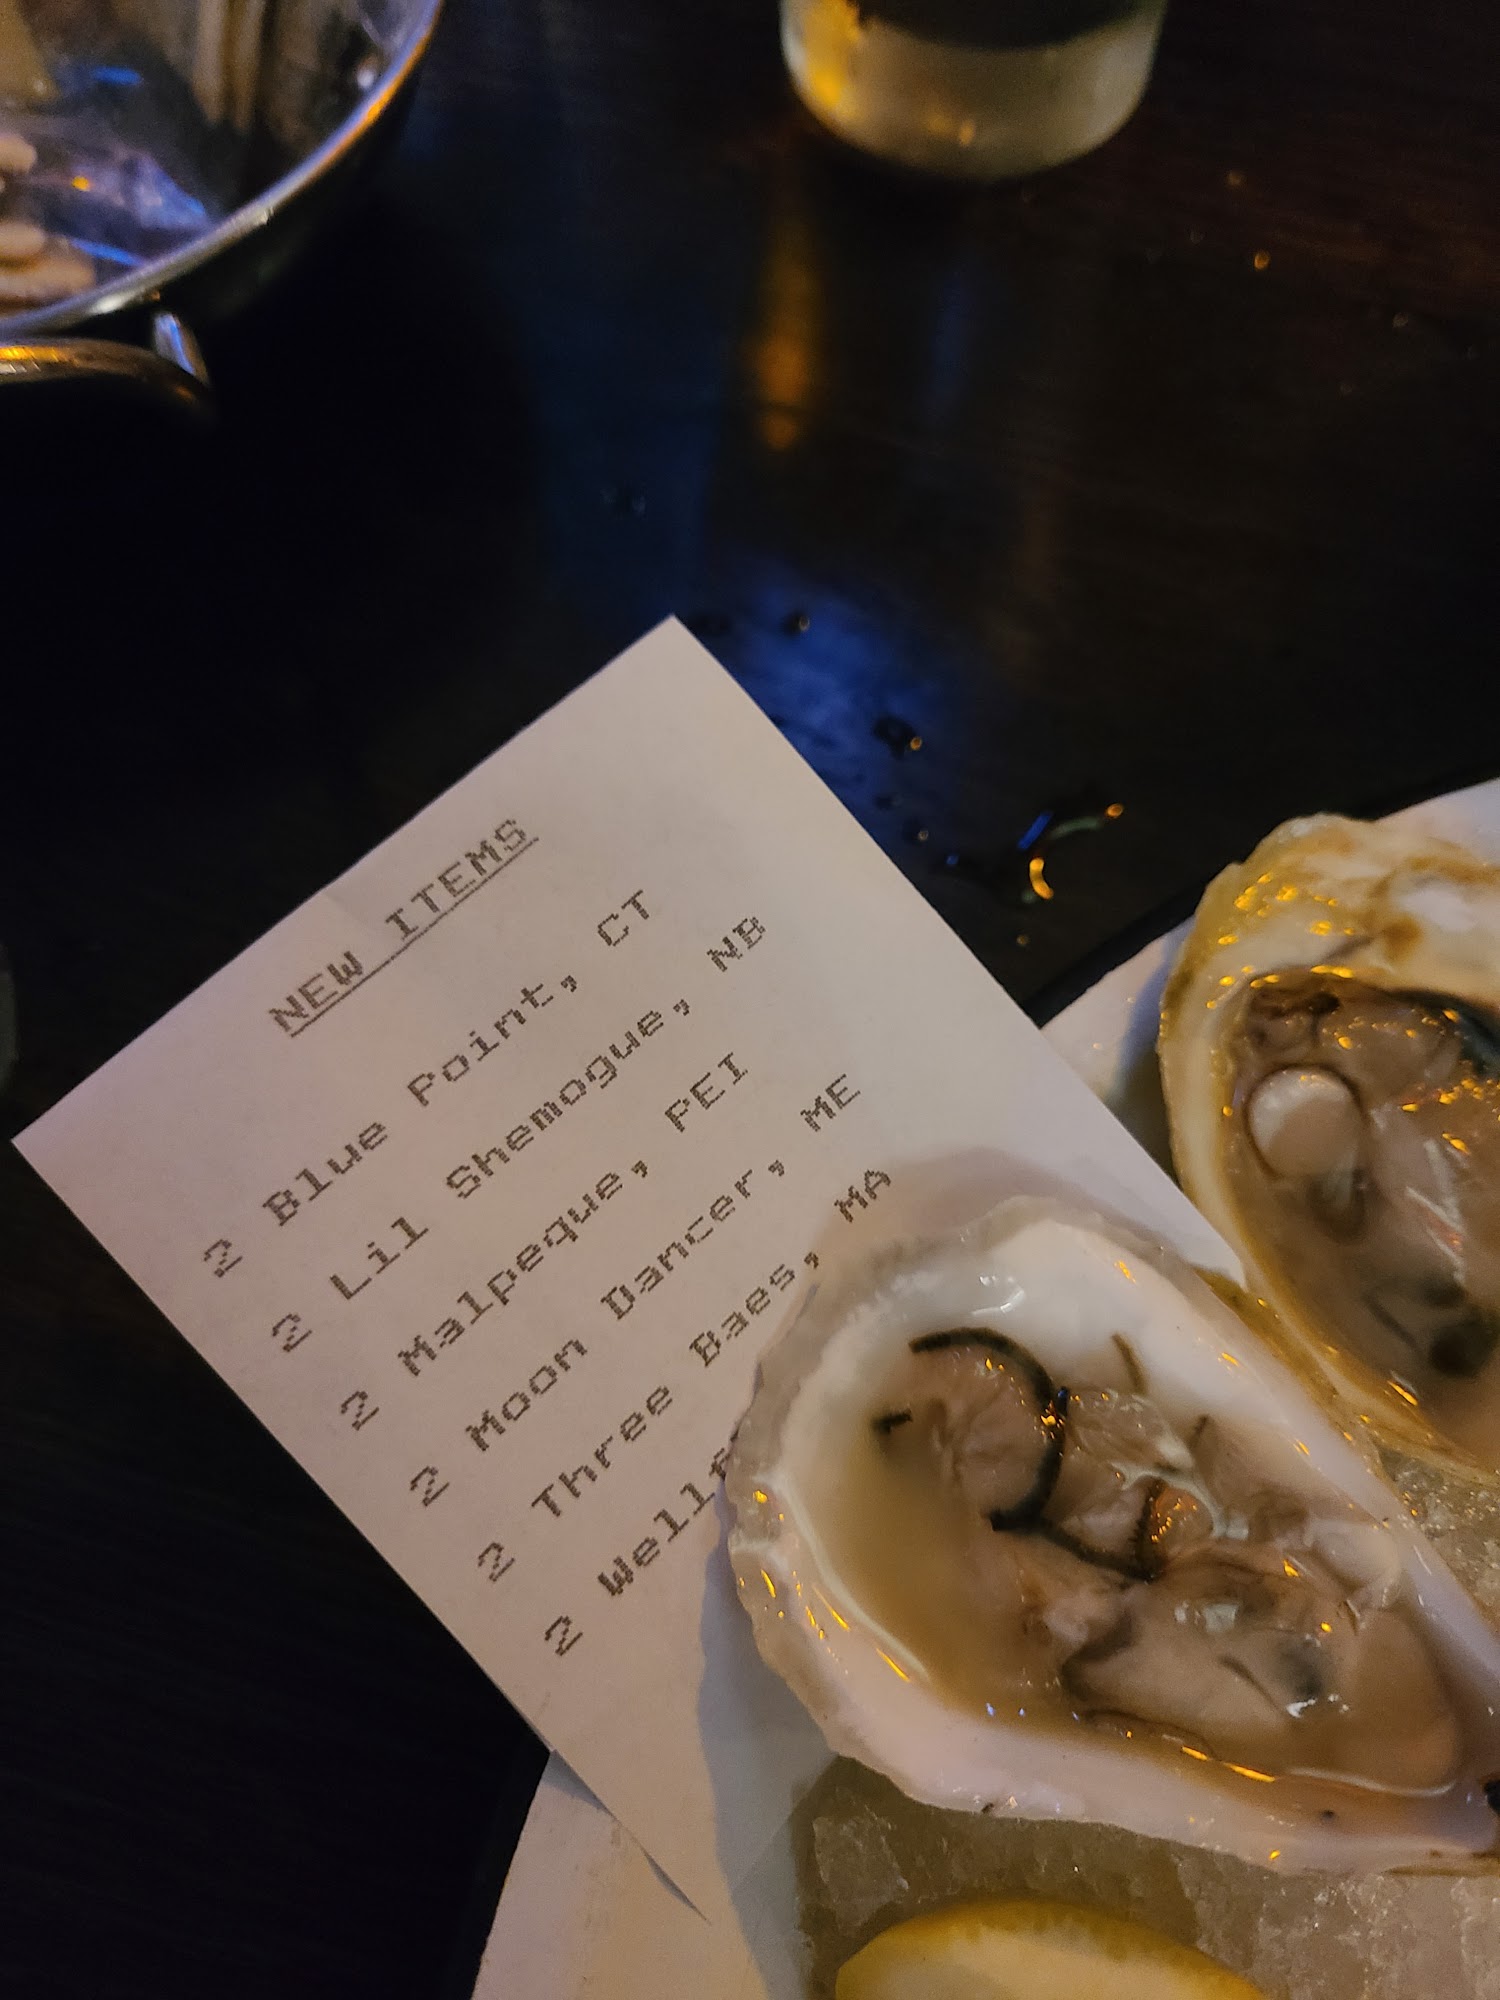 NEW ITEMS
2 Blue Point, CT
2 Lil Shemogue, NB
2 Malpeque, PEI
2 Moon Dancer, ME
2 Three Baes, MA
2